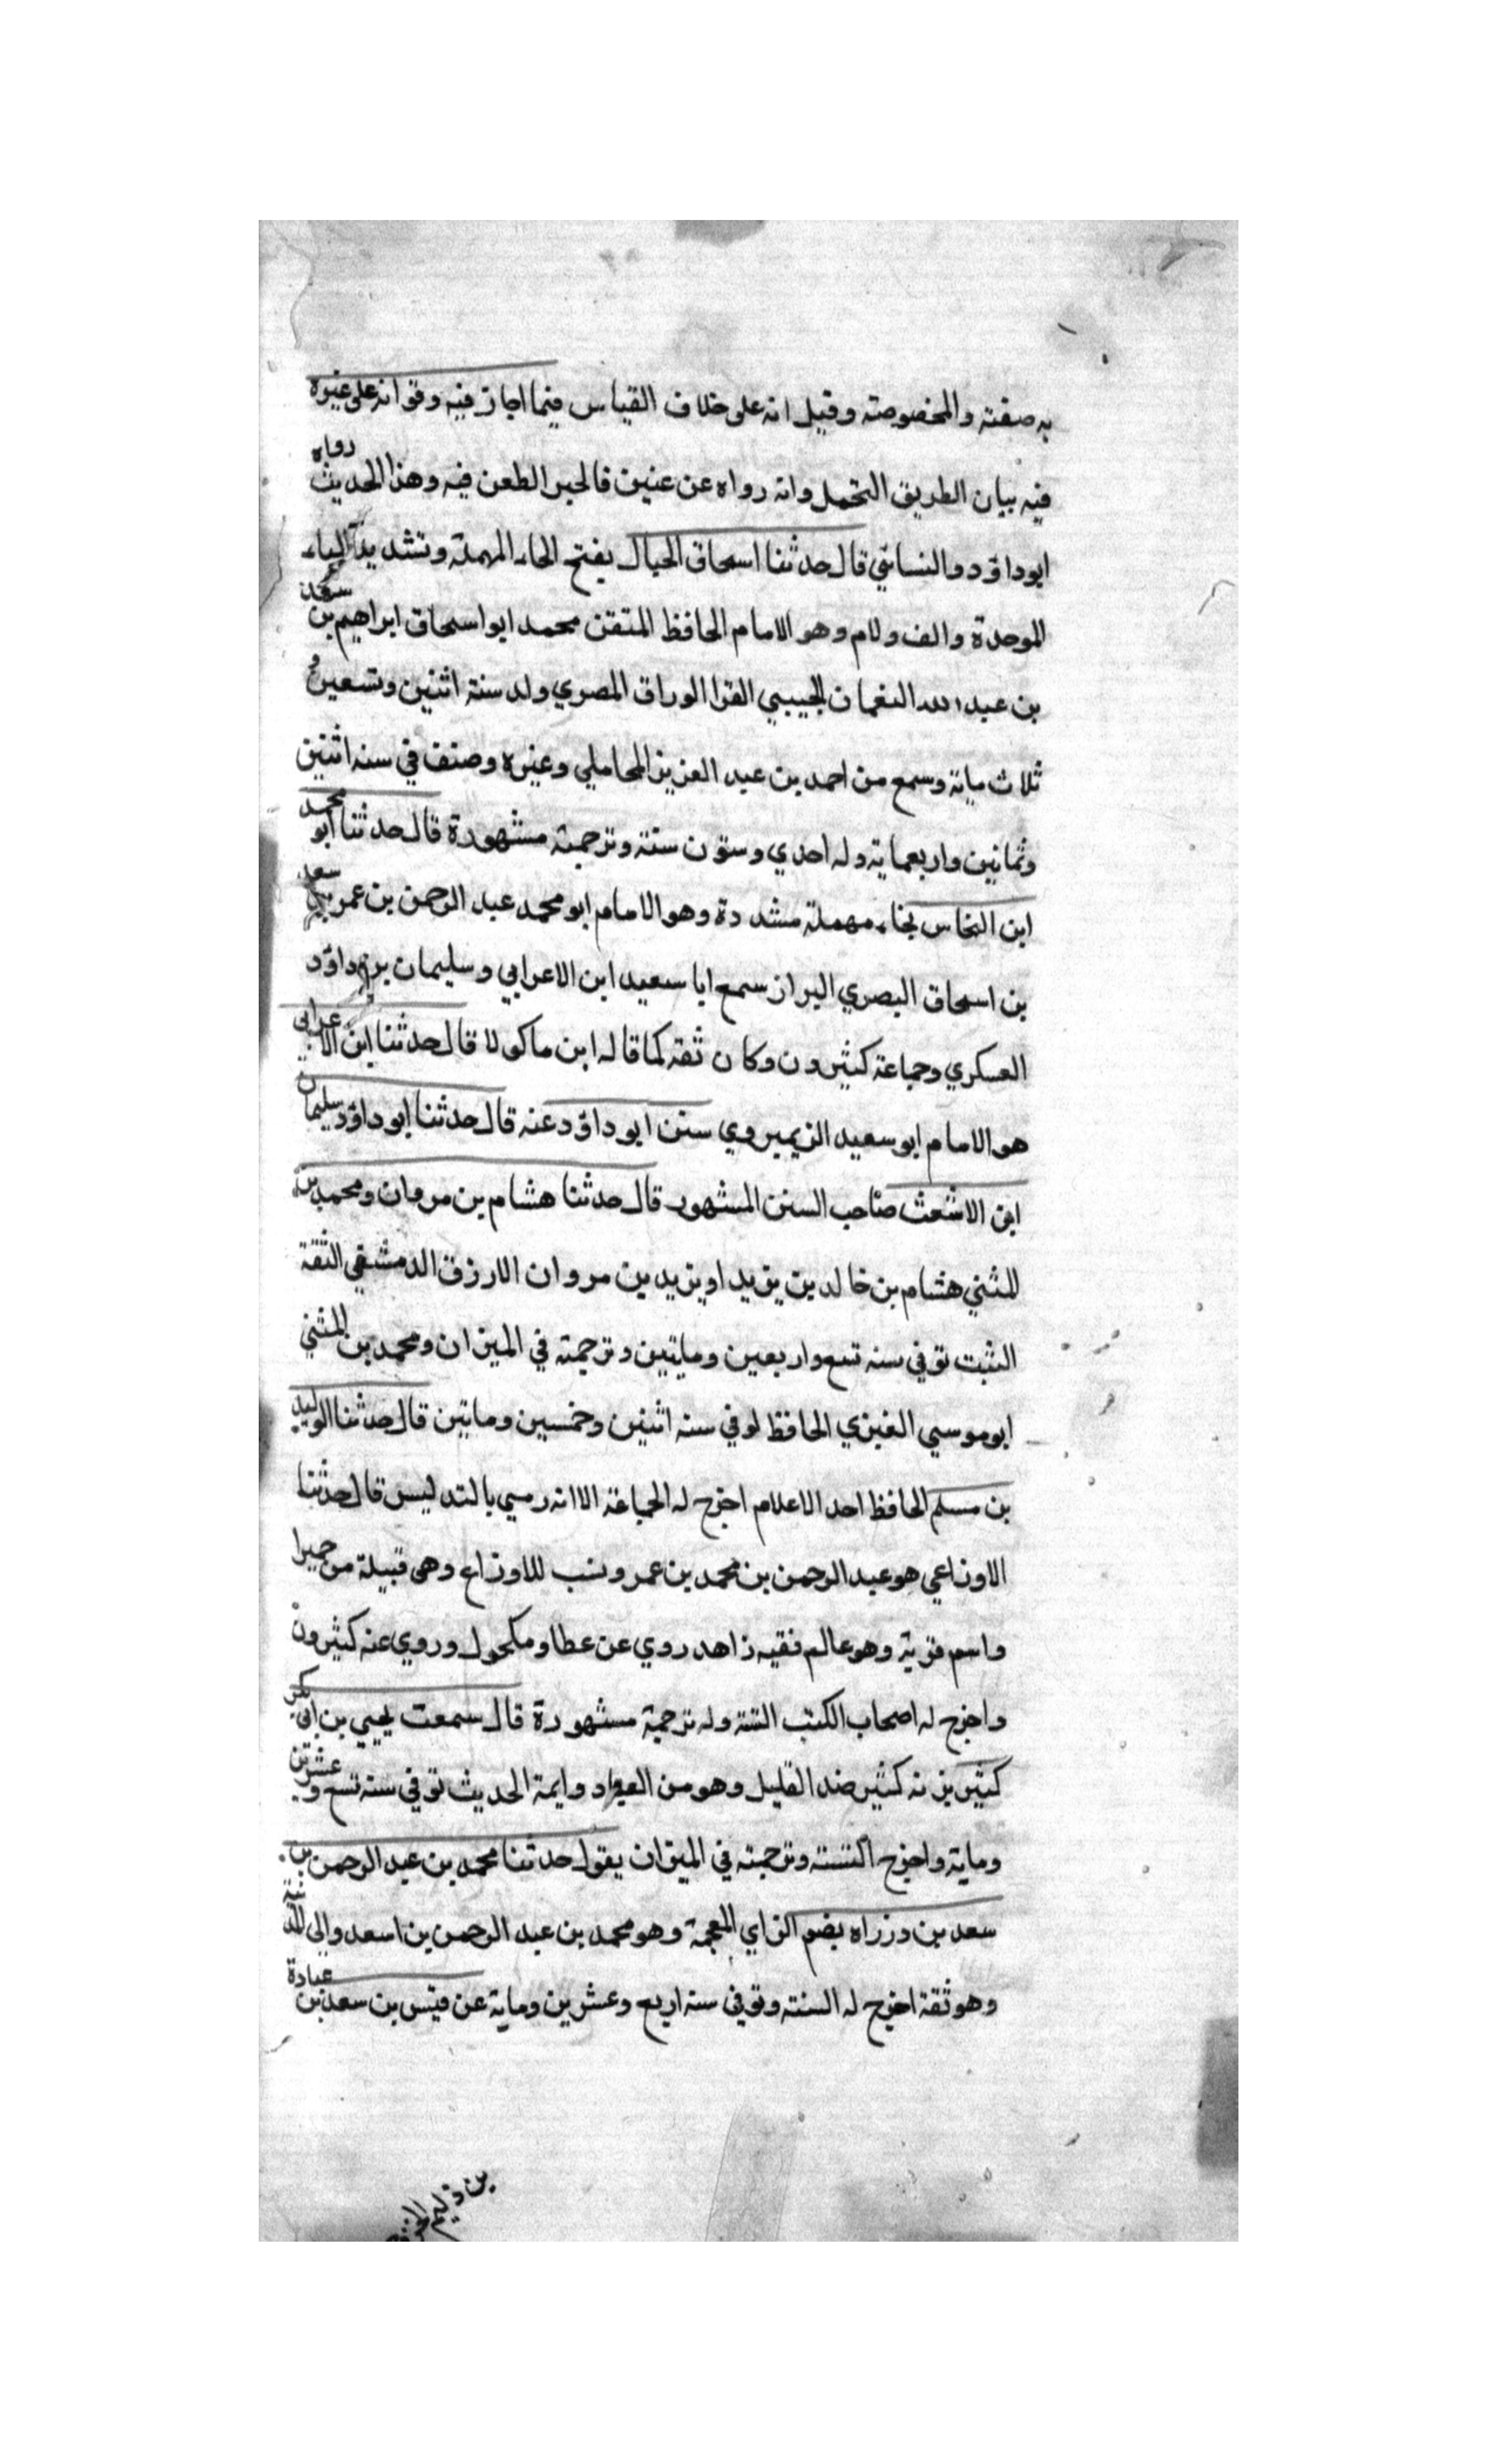 به صفته والمخصوصته وقيل انه على خلاف القياس فيما اجاز فيه وقوانه على غيره
فيه بيان الطريق التحمل وانه رواه عن عنين فالحبر الطعن فيه وهذا الحديث رواه
ابوداؤد والنسائي قال حدثنا اسحاق الحبال بفتح الحاء المهملة وتشديد الباء
الموحدة والف ولام وهو الامام الحافظ المتقن محمد ابواسحاق ابراهيم بن سعد
بن عبد الله النعمان الجيبي الفرا الوراق المصري ولد سنة اثنين وتسعين و
ثلاث مائة وسمع من احمد بن عبد العزيز المحاملي وغيره وصنف في سنه اثنين
وثمانين واربعماية وله احدي وستون سنة وترجمته مشهورة قال حدثنا ابو محمد
ابن النحاس بحاء مهملة مشددة وهو الامام ابو محمد عبد الرحمن بن عمر بن سعد
بن اسحاق البصري البزاز سمع ابا سعيد ابن الاعرابي وسليمان بن داؤد
العسكري وجماعة كثيرون وكان ثقه كما قاله ابن ماكولا قال حدثنا ابن الاعرابي
هو الامام ابو سعيد الذي يروي سنن ابو داؤد عنه قال حدثنا ابو داؤد سليمان
ابن الاشعث صاحب السنن المشهور قال حدثنا هشام بن مروان ومحمد بن
المثني هشام بن خالد بن يزيد او يزيد بن مروان الارزق الدمشقي الثقة
الثبت توفي سنه تسع واربعين ومايتين وترجمته في الميزان ومحمد بن المثني
ابو موسي العنزي الحافظ توفي سنه اثنين وخمسين وماتين قال حدثنا الوليد
بن مسلم الحافظ احد الاعلام اخرج له الجماعة الا انه رمي بالتدليس قال حدثنا
الاوزاعي هو عبد الرحمن بن محمد بن عمر ونسب للاوزاع وهي قبيلة من حميرا
واسم قرية وهو عالم فقيه زاهد روي عن عطا ومكحول وروي عنه كثيرون
واخرج له اصحاب الكتب الستة وله ترجمة مشهورة قال سمعت يحيي بن ابي بكير
كثير بزنه كثير ضد القليل وهو من العباد وايمة الحديث توفي سنه تسع وعشرين
وماية واخرج الستة وترجمته في الميزان يقول حدثنا محمد بن عبد الرحمن بن
سعد بن وزراه بضم الزاي المعجمة وهو محمد بن عبد الرحمن بن اسعد والي المدينة
وهو ثقة اخرج له الستة وتوفي سنه اربع وعشرين وماية عن قيس بن سعد بن عبادة
بن دليم